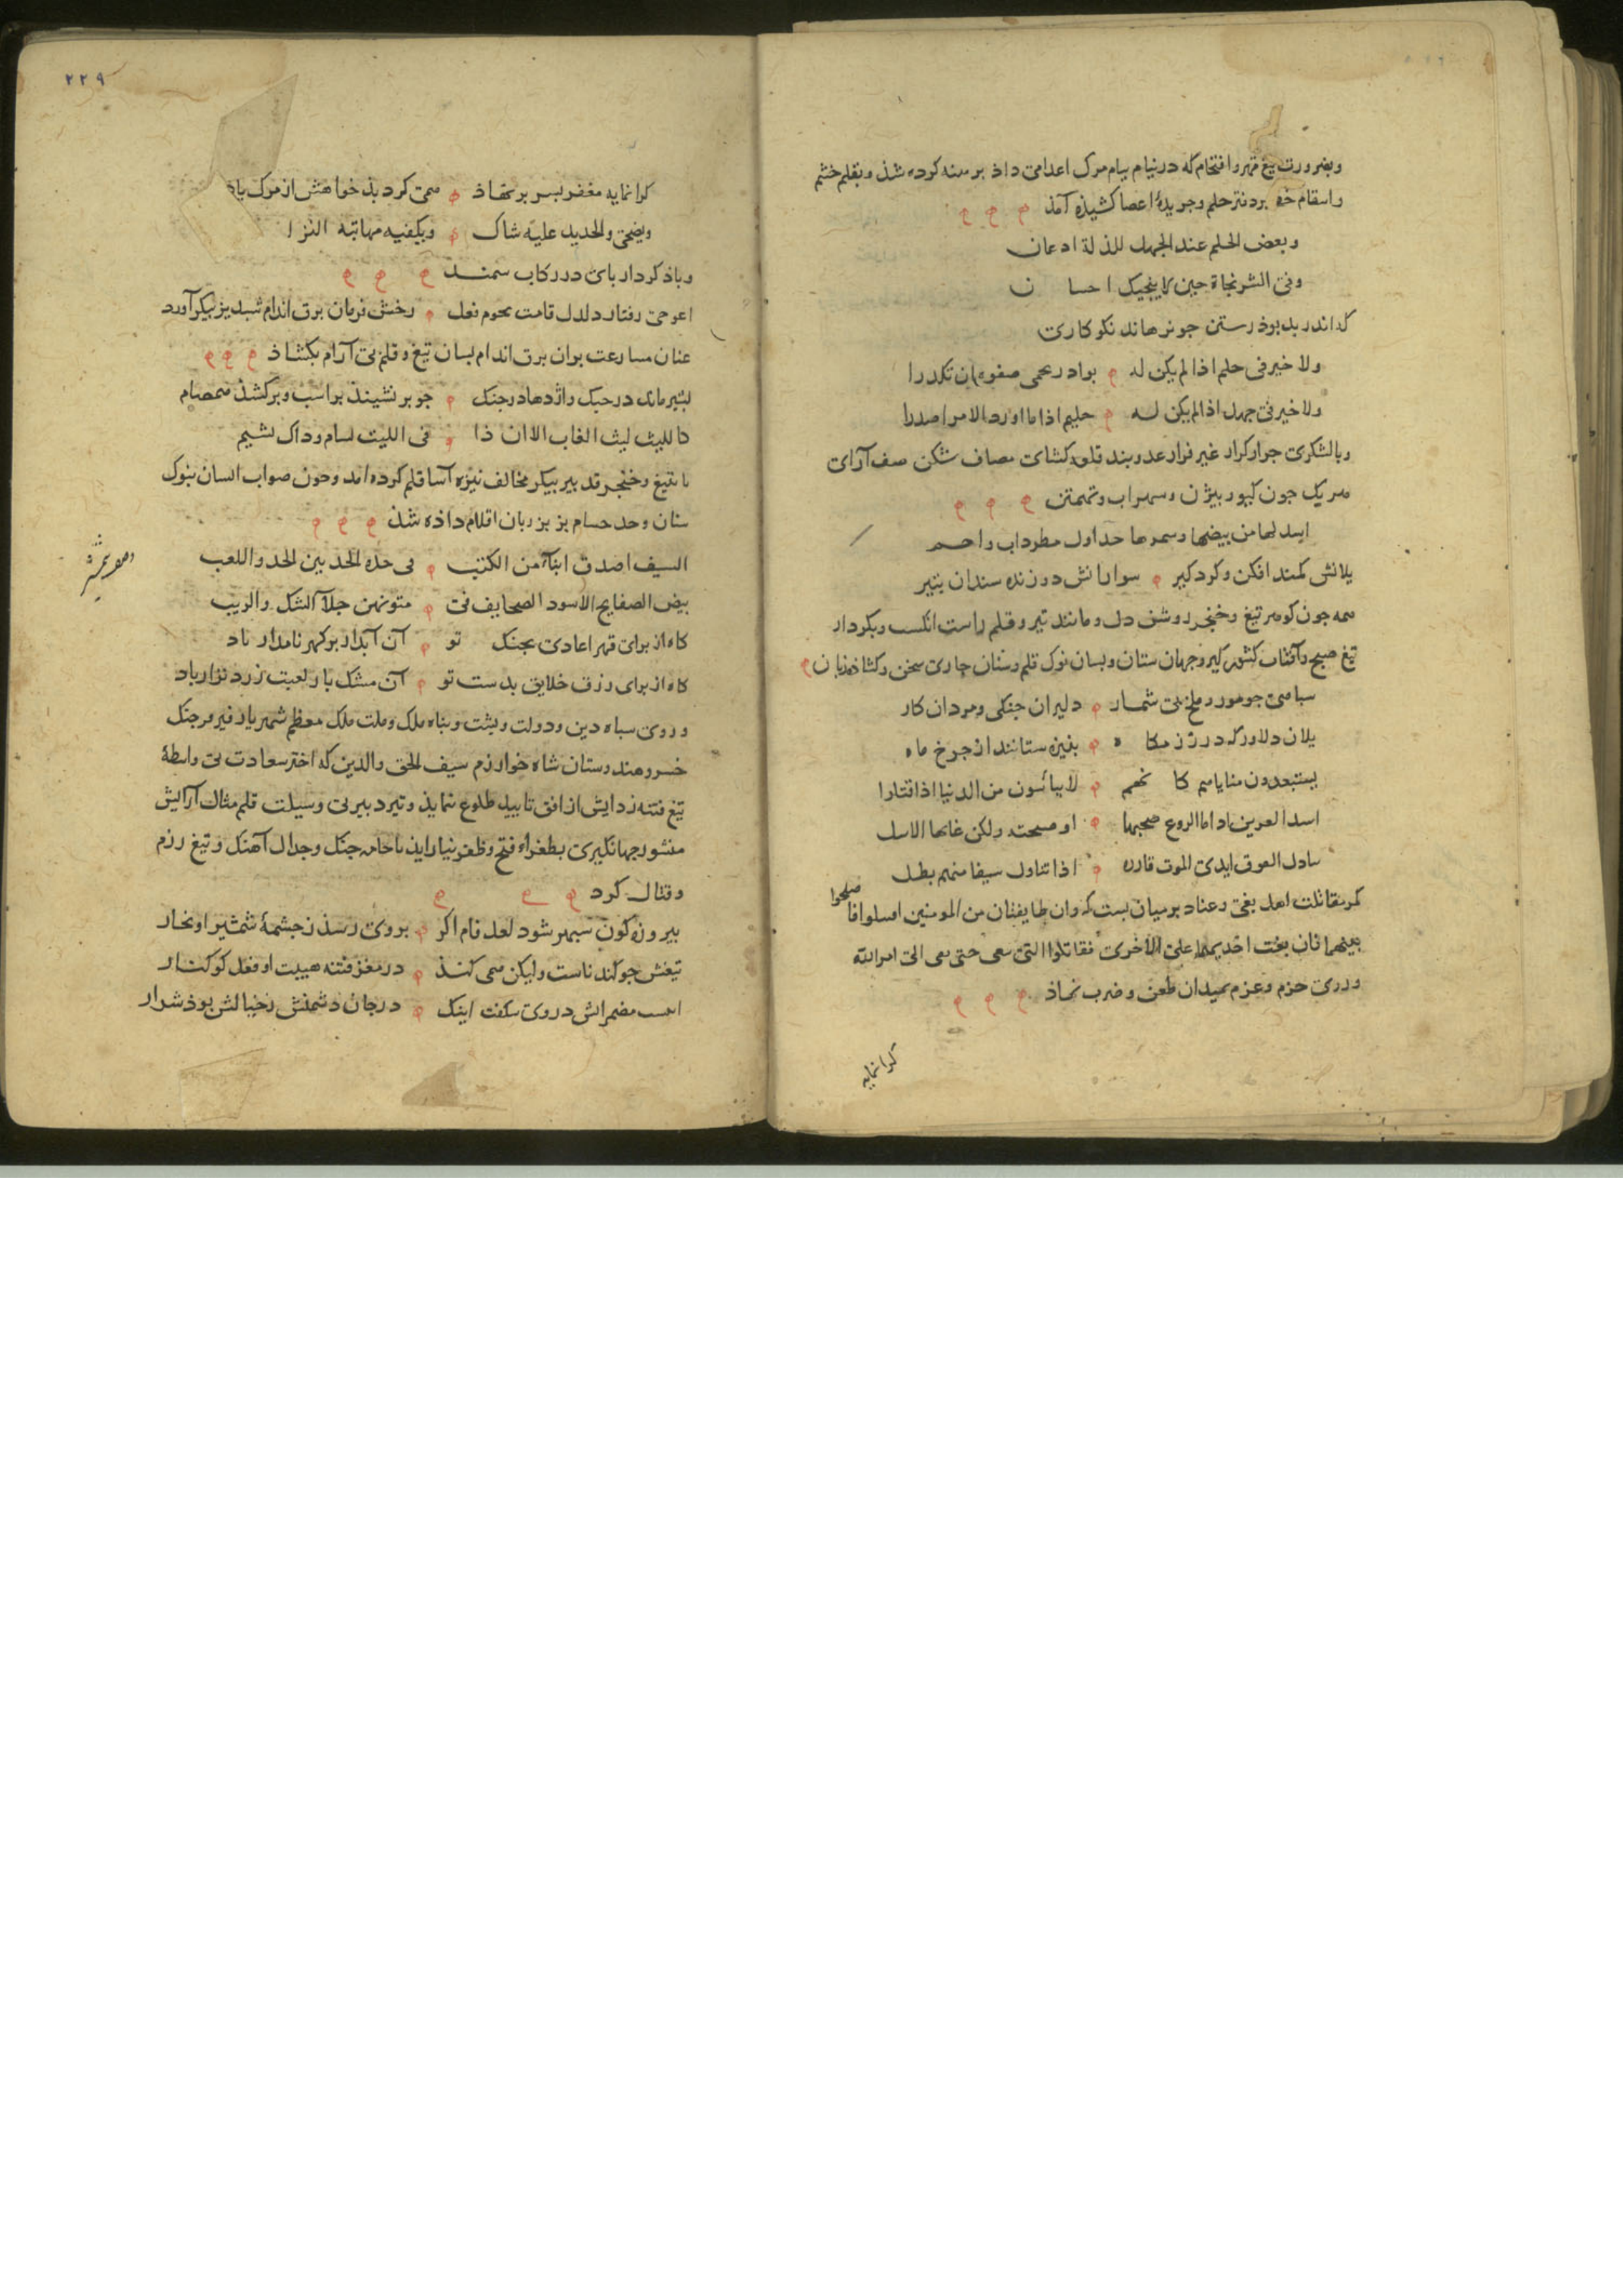 وبضرورت تیغ قهر وانتقام که در نیام پیام مرک اعدا می داذ برهنه کرده شذ وبقلم خشم
واسقام خط بر دفتر حلم وجریدهٔ اعصا کشیذه آمذ
وبعض الحلم عند الجهل للذلة اذعان
وفی الشر نجاة حین لا ینجیک احسان
که اندر بد بوذ رستن جو نرهاند نکوکاری
ولا خیر فی حلم اذا لم یکن له بوادر تحمی صفوه ان تکدرا
ولا خیر فی جهل اذا لم یکن له حلیم اذا ما اورد الامر اصدرا
وبا لشکری جرار کرار غیر فرار عدو بند قلعه کشای مصاف شکن صف آرای
هریک جون کیو وبیژن وسهراب وتهمتن
یلانش کمند افکن وکرد کیر سوارانش دوزنده سندان بتیر
همه جون کوهر تیغ وخنجر روشن دل ومانند تیر وقلم راست
تیغ صبح وآفتاب کشور کیر وجهان ستان وبسان نوک قلم وسنان جاری سخن وکشاده زبان
سباهی جو مور وملخ بی شمار دلیران جنکی ومردان کار
یلان دلاور که در رزمکاه بنیزه ستانند از جرخ ماه
یستبعدون منایاهم کانهم لا ییاسون من الدنیا اذا قتلوا
اسد العرین اذا ما الروع صبحها او صبحته ولکن غابها الاسل
اذا تناول سیفا منهم بطل
کمر مقاتلت اهل بغی وعناد بر میان بست که وان طایفتان من المومنین اقتتلوا فاصلحوا
بینهما فان بغت احدیهما علی الاخری فقاتلوا التی تبغی حتی تفی الی امر الله
وروی حزم وعزم بمیدان طعن وضرب نهاذ
کرانمایه
۲۲۹
کرانمایه مغفر بسر بر نهاذ همی کرد بذخواهش از مرک یاذ
ویضحی والحدید علیه شاک وتکفیه مهابته النزالا
وباذ کردار بای در رکاب سمند
اعوجی رفتار دلدل قامت یحموم فعل رخش فرمان برق اندام شبدیز بیکر آورد
عنان مسارعت بران برق اندام بسان تیغ وقلم بی آرام بکشاذ
بشیر ماند در جنک واژدها در جنک جو بر نشیند بر اسب وبرکشذ صمصام
کاللیث لیث الغاب الا ان ذا فی اللیث بسام وذاک بشیم
تا بتیغ وخنجر قد بیر بیکر مخالف نیزه آسا قلم کرده آمد وجون صواب انسان بنوک
سنان وحد حسام بر بزبان اقلام داذه شذ
السیف اصدق انباء من الکتب فی حده الحد بین الجد واللعب
بیض الصفایح لا سود الصحایف فی متونهن جلاء الشک والریب
کاه از برای قهر اعادی بجنک تو آن آبدار بر کهر نامدار باد
کاه از برای رزق خلایق بدست تو آن مشک بار لعبت زرد نزار باد
وروی سباه دین ودولت وبشت وبناه ملک وملت ملک معظم شهریار فیروز جنک
خسرو هندوستان شاه خوارزم سیف الحق والدین که اختر سعادت بی واسطهٔ
تیغ فتنه زدایش از افق تایید طلوع ننماید وتیر دبیر بی وسیلت قلم مثال آرایش
منشور جهانکیری بطغراء فتح وظفر نیاراید با جامه جنک وجدال آهنک وتیغ رزم
وقتال کرد
بیروزه کون سبهر شود لعل فام اکر بروی رسذ زجشمهٔ شمشیر او بخار
تیغش جو کندناست ولیکن همی کنذ در مغز فتنه هیبت او فعل کوکنار
در جان دشمنش زخیالش بوذ شرار